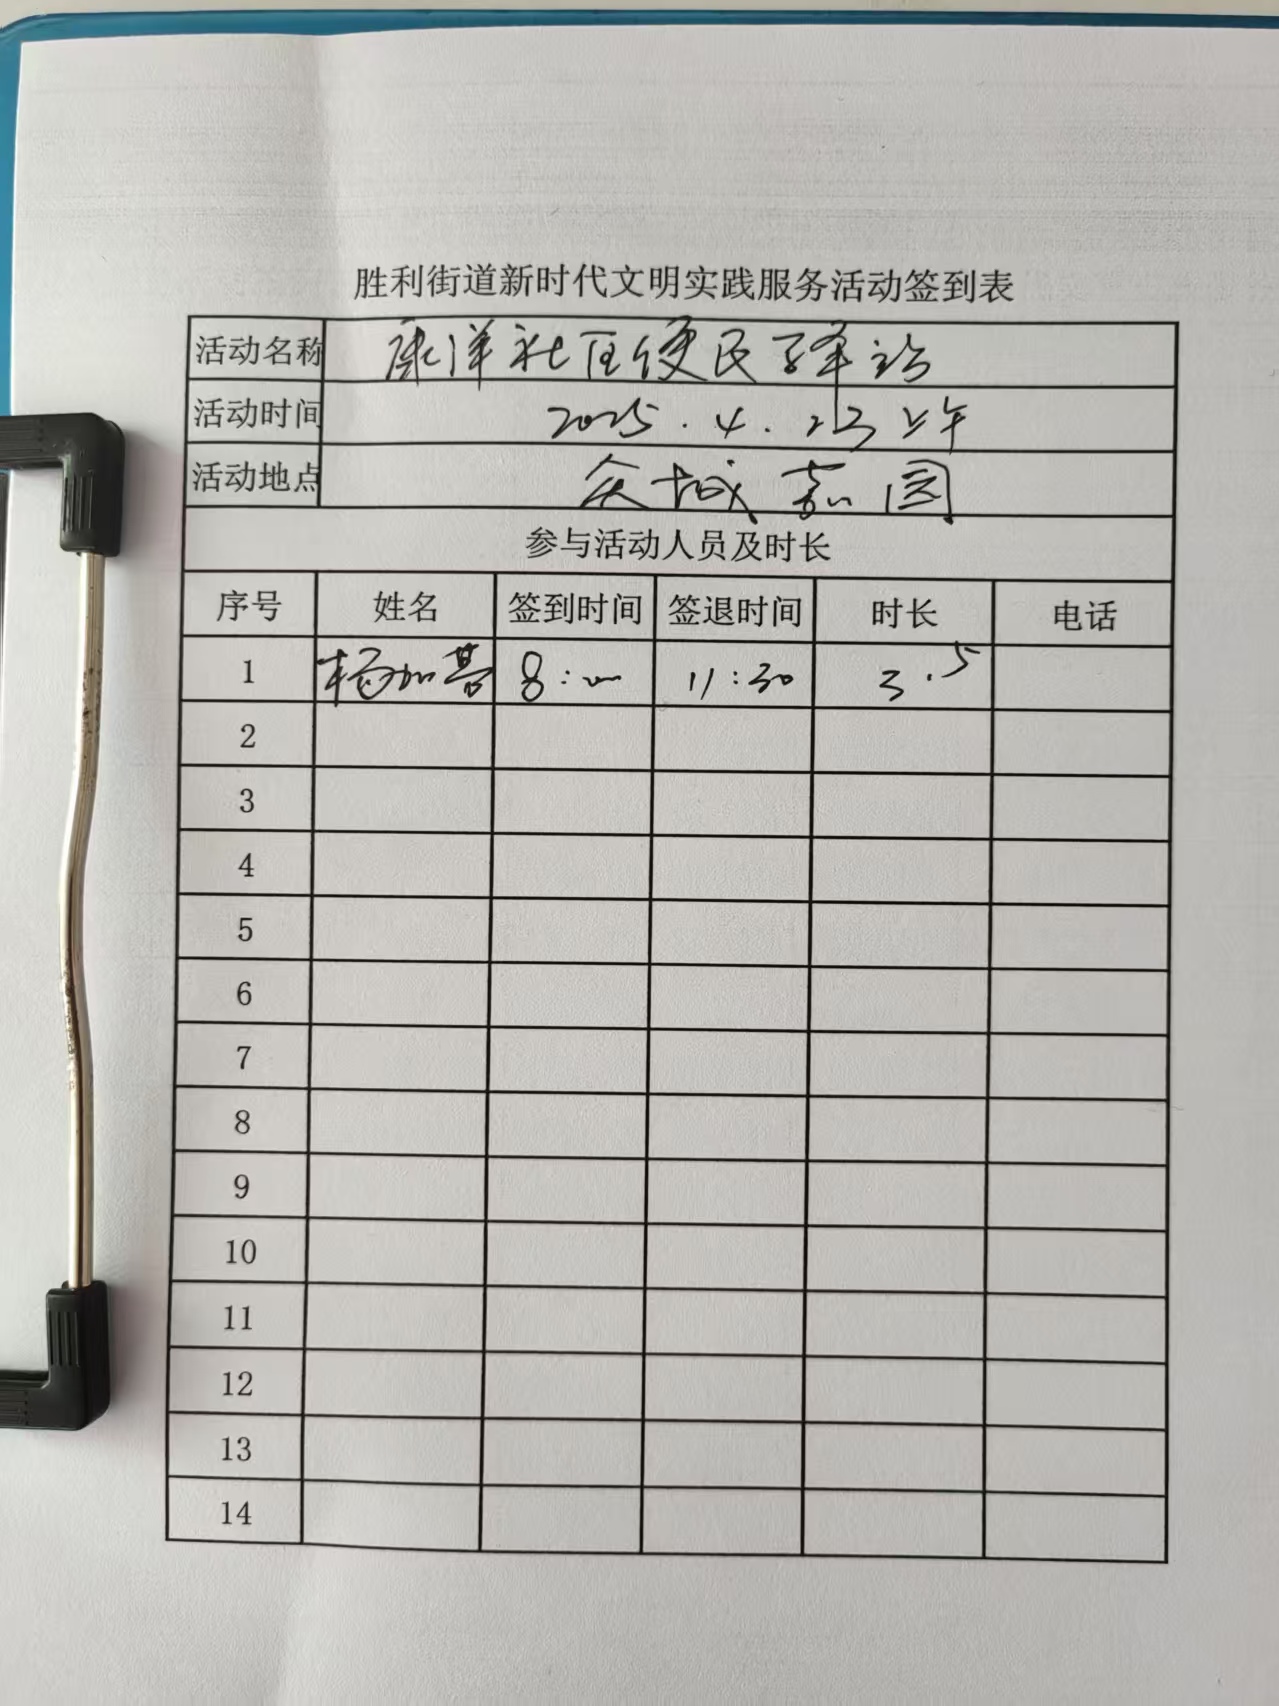 胜利街道新时代文明实践服务活动签到表
活动名称 康洋社区便民驿站
活动时间 2025.4.23上午
活动地点 众城嘉园
参与活动人员及时长
序号 姓名 签到时间 签退时间 时长 电话
1 杨加 8:00 11:30 3.5
2
3
4
5
6
7
8
9
10
11
12
13
14